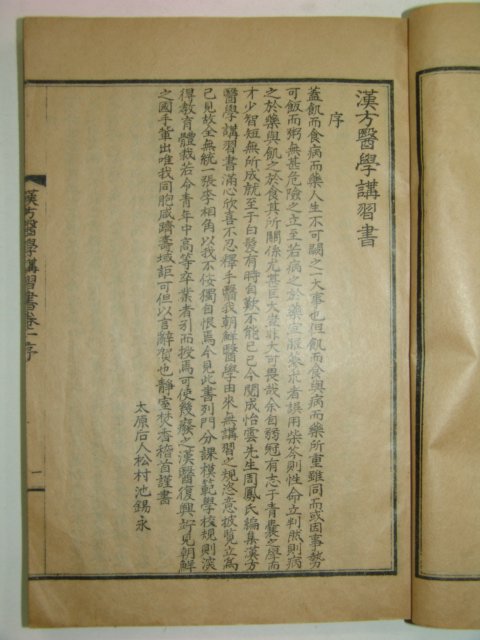 漢方醫學講習書
序
蓋飢而食病而藥人生不可闕之一大事也但飢而食與病而藥所重雖同而或因事勢
可飯而粥無甚危險之立至若病之於藥宜服蔘朮者誤用柴芩則性命立判然則病
之於藥與飢之於食其所關係尤甚巨大豈非大可畏哉余自弱冠有志于青囊之學而
才少智短無所成就至于白髮有時自歎不能已已今聞成怡雲先生周鳳氏編集漢方
醫學講習書滿心欣喜不忍釋手豎我朝鮮醫學由來無講習之規恣意披覽立爲
己見故全無統一張李相角以我不佞獨自恨焉今見此書列門分課模範學校規則深
得教育體裁若令青年中高等卒業者引而授焉可使幾癈之漢醫復興許見朝鮮
之國手輩出唯我同胞咸躋壽域詎可但以言辭賀也靜室焚香稽首謹書
太原后人松村池錫永
漢方醫學講習書卷一序
一